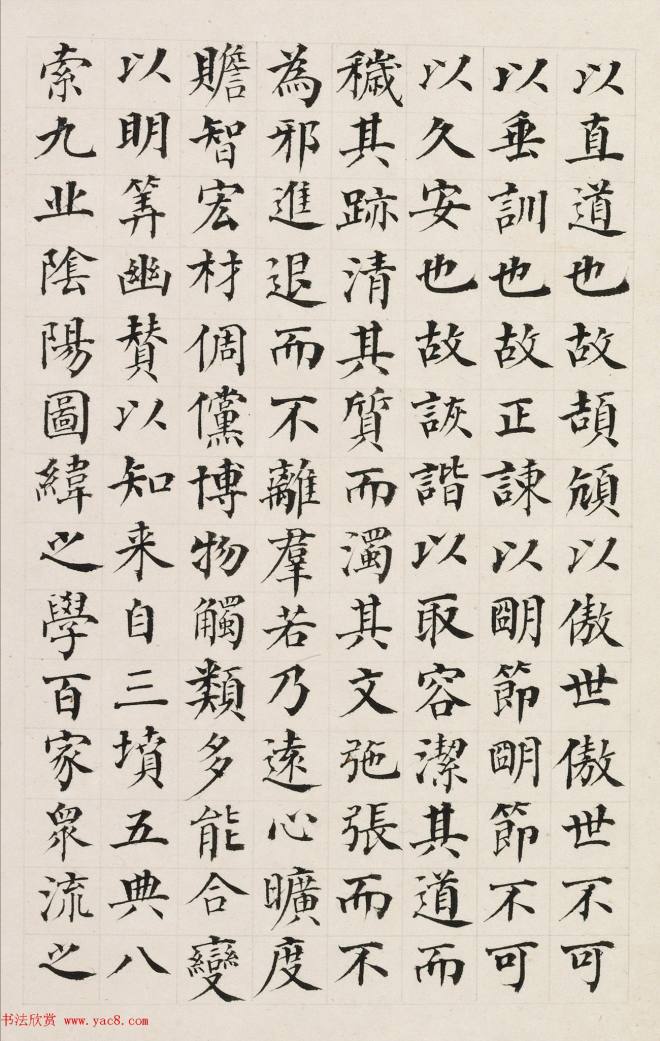 以直道也故頡頏以傲世傲世不可
以垂訓也故正諫以眀節眀節不可
以久安也故詼諧以取容潔其道而
穢其跡清其質而濁其文弛張而不
為邪進退而不離羣若乃遠心曠度
贍智宏材倜儻博物觸類多能合變
以明筭幽賛以知来自三墳五典八
索九丘陰陽圖緯之學百家衆流之
书法欣赏 www.yac8.com